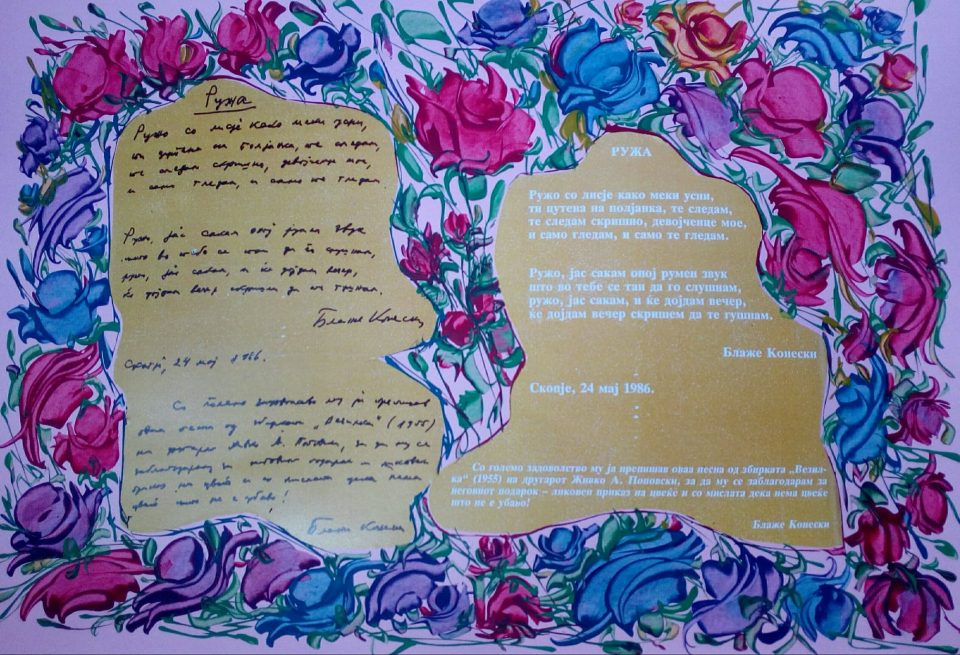 Ружа
Ружо со лисје како меки усни,
ти цутена на полјанка, те следам,
те следам скришно, девојченце мое,
и само гледам, и само те гледам.
Ружо, јас сакам оној румен звук
што во тебе се таи да го слушнам,
ружо, јас сакам, и ќе дојдам вечер,
ќе дојдам вечер скришем да те гушнам.
Блаже Конески
Скопје, 24 мај 1986.
Со големо задоволство му ја препишав
оваа песна од збирката „Везилка“ (1955)
на другарот Живко А. Поповски, за да му се
заблагодарам за неговиот подарок – ликовен
приказ на цвеќе и со мислата дека нема
цвеќе што не е убаво!
Блаже Конески
РУЖА
Ружо со лисје како меки усни,
ти цутена на полјанка, те следам,
те следам скришно, девојченце мое,
и само гледам, и само те гледам.
Ружо, јас сакам оној румен звук
што во тебе се таи да го слушнам,
ружо, јас сакам, и ќе дојдам вечер,
ќе дојдам вечер скришем да те гушнам.
Блаже Конески
Скопје, 24 мај 1986.
Со големо задоволство му ја препишав оваа песна од збирката „Везил-
ка“ (1955) на другарот Живко А. Поповски, за да му се заблагодарам за
неговиот подарок – ликовен приказ на цвеќе и со мислата дека нема цвеќе
што не е убаво!
Блаже Конески